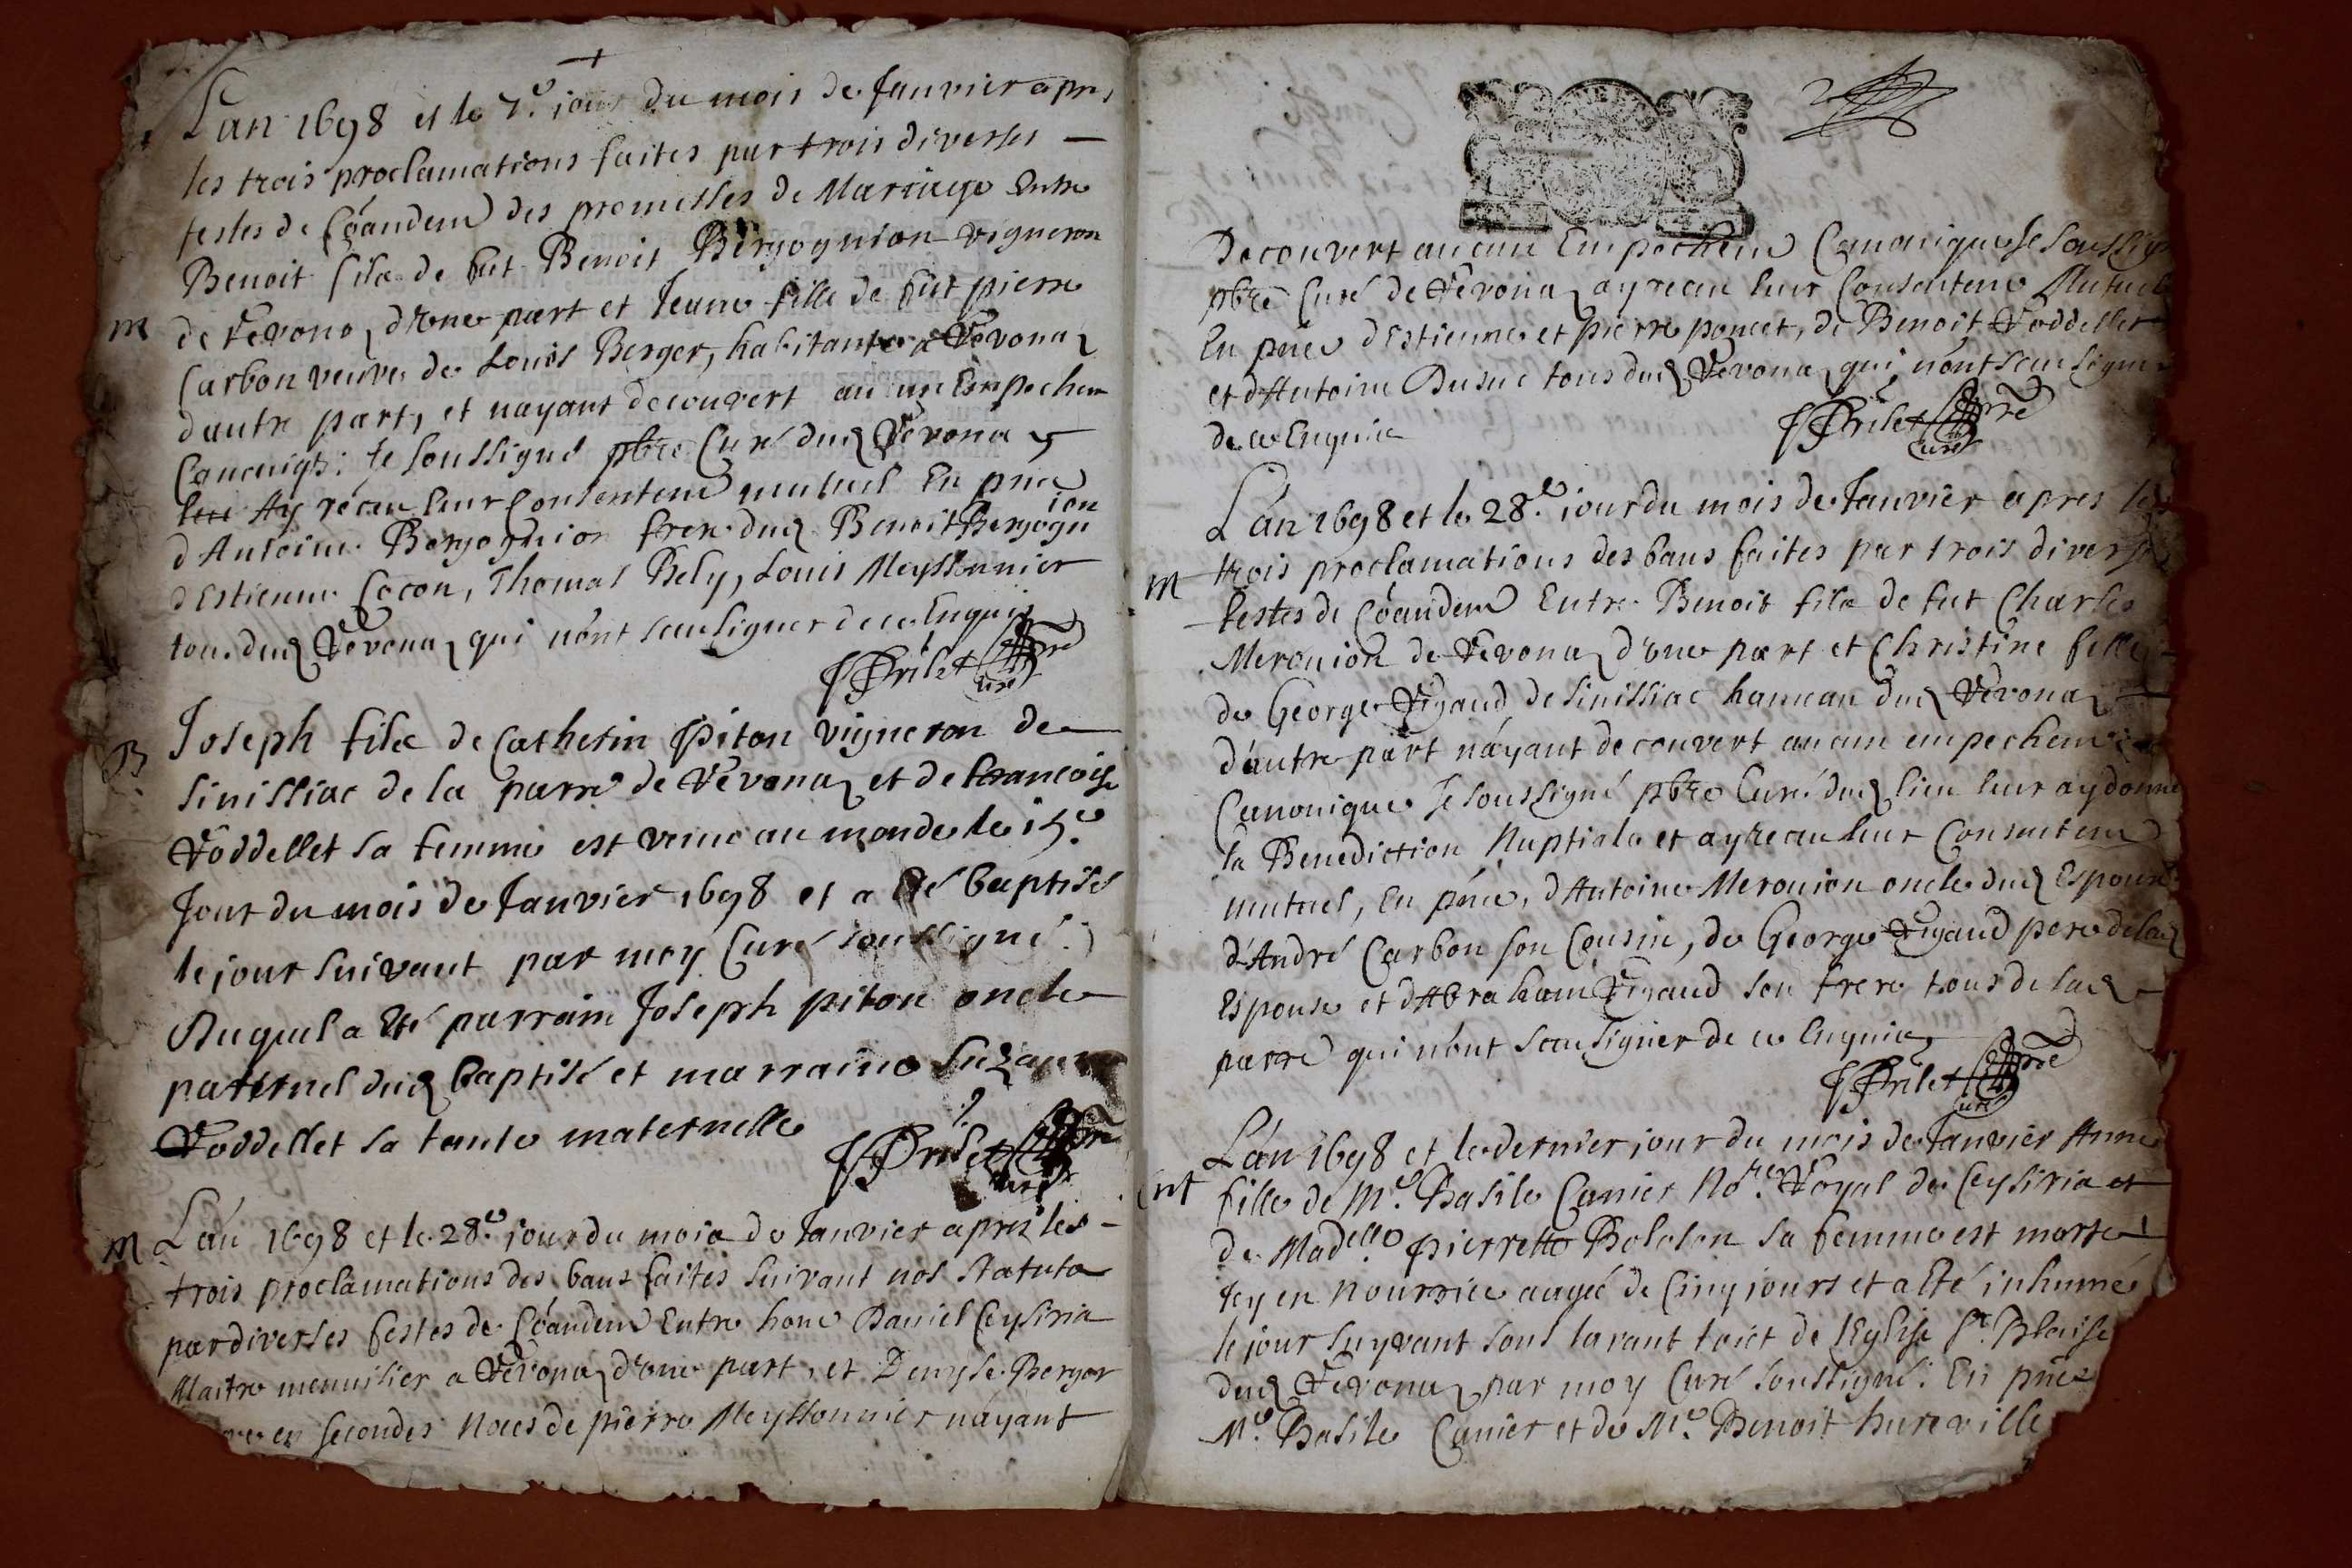 L'an 1698 et le 7.e jour du mois de Janvier apres
les trois proclamations faites par trois diverses —
festes de Cõandem̃ des promesses de Mariage Entre
Benoit fils de fut Benoit Bergognion vigneron
m de Vevona d'une part et Jeane fille de fut pierre
Carbon veuve de Louis Berger, habitante a Vevonaz
dautre part, et nayant decouvert aucun Empechem
Canoniq: Je soussigné pbre Curé dud Vevonaz
Ay receu leur Consentem̃ mutuel En pñce
d'Antoine Bergognion frere dud Benoit Bergognion
d'Estienne Cocon, Thomas Bely, Louis Meyssonnier
tous dud Vevonaz qui n'ont sceu signer de ce Enquis
Prilet pre
Curé
B Joseph fils de Catherin Piton vigneron de
Sinissiac de la parre de Vevonaz et de francoise
Voddellet sa femme est venu au monde le 15.e
Jour du mois de Janvier 1698 et a Eté baptisé
le jour suivant par moy Curé soussigné.
Auquel a Eté parrain Joseph piton oncle
paternel dud baptisé et marraine Suzanne
Voddellet sa tante maternelle
Prilet pre
Curé
M L'an 1698 et le 28.e jour du mois de Janvier apres les
trois proclamations des bans faites suivant nos statuts
par diverses festes de Cõandem̃ Entre hone Daniel Ceysiria
Maitre menuisier a Vevonaz d'une part, et Denyse Berger
en secondes Noces de pierre Meyssonnier nayant
2
Decouvert aucun Empechem̃ Canonique Je soussigné
pbre Curé de Vevonaz ay receu leur Consentem̃ Mutuel
En pñce d'Estienne et pierre poncet, de Benoit Voddellet
et d'Antoine Dusuc tous dud Vevonaz qui n'ont sceu signer
de ce Enquis
Prilet pre
Curé
L'an 1698 et le 28.e jour du mois de Janvier apres les
m trois proclamations des bans faites par trois diverses
festes de Cõandem̃ Entre Benoit fils de fut Charles
Meronion de Vevonaz d'une part et Christine fille
de George Vigaud de Sinissiac hameau dud Vevonaz
d'autre part n'ayant decouvert aucun empechem̃
Canonique Je soussigné pbre Curé dud lieu leur ay donné
la Benediction Nuptiale et ay receu leur Consentem̃
mutuel, En pñce, d'Antoine Meronion oncle dud Espoux
d'André Carbon son Cousin, de George Vigaud pere de lad
Espouse et d'Abraham Vigaud son frere tous de lad
parre qui n'ont sceu signer de ce Enquis
Prilet pre
Curé
L'an 1698 et le dernier jour du mois de Janvier Anne
mt fille de M.e Basile Cunier No.re Royal de Ceysiria et
de Madelle pierrette Bololon sa femme est morte
Icy en Nourrice aagée de Cinq jours et a Eté inhumé
le jour suyvant sous lavant toict de l'Eglise St. Blaise
dud Vevonaz par moy Curé soussigné. En pñce
M.e Basile Cunier et de M.e Benoit hureville